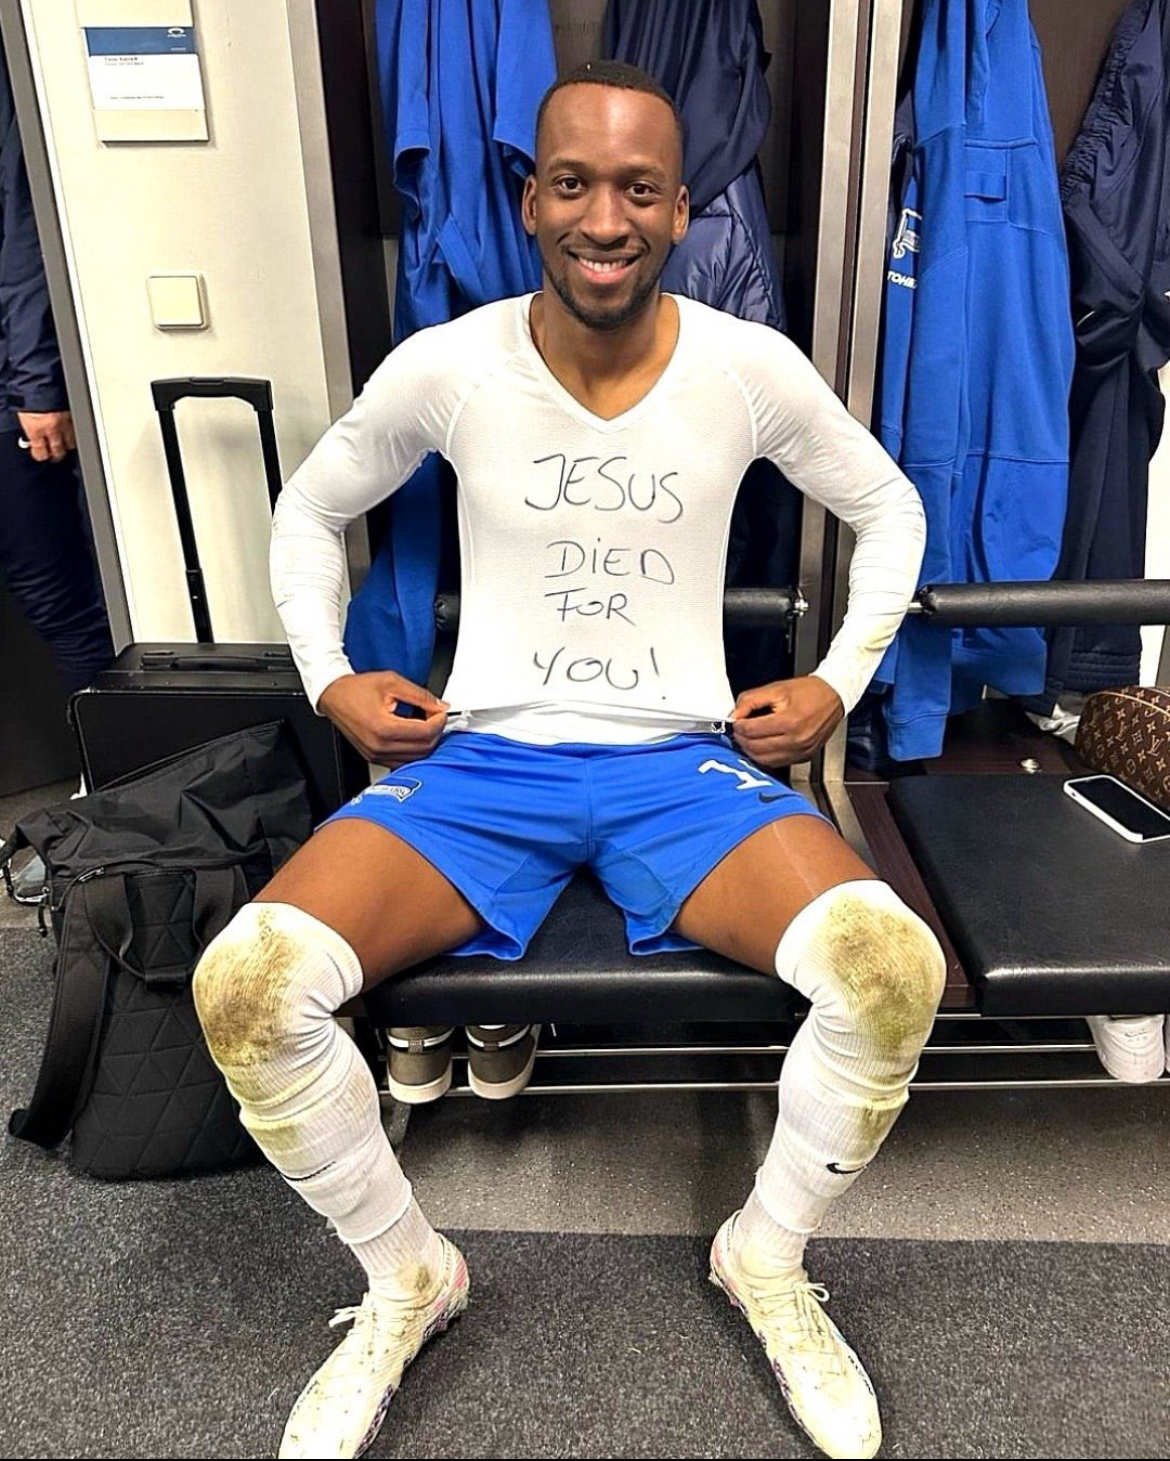 JESUS
DiED
FOR
YOU!
1